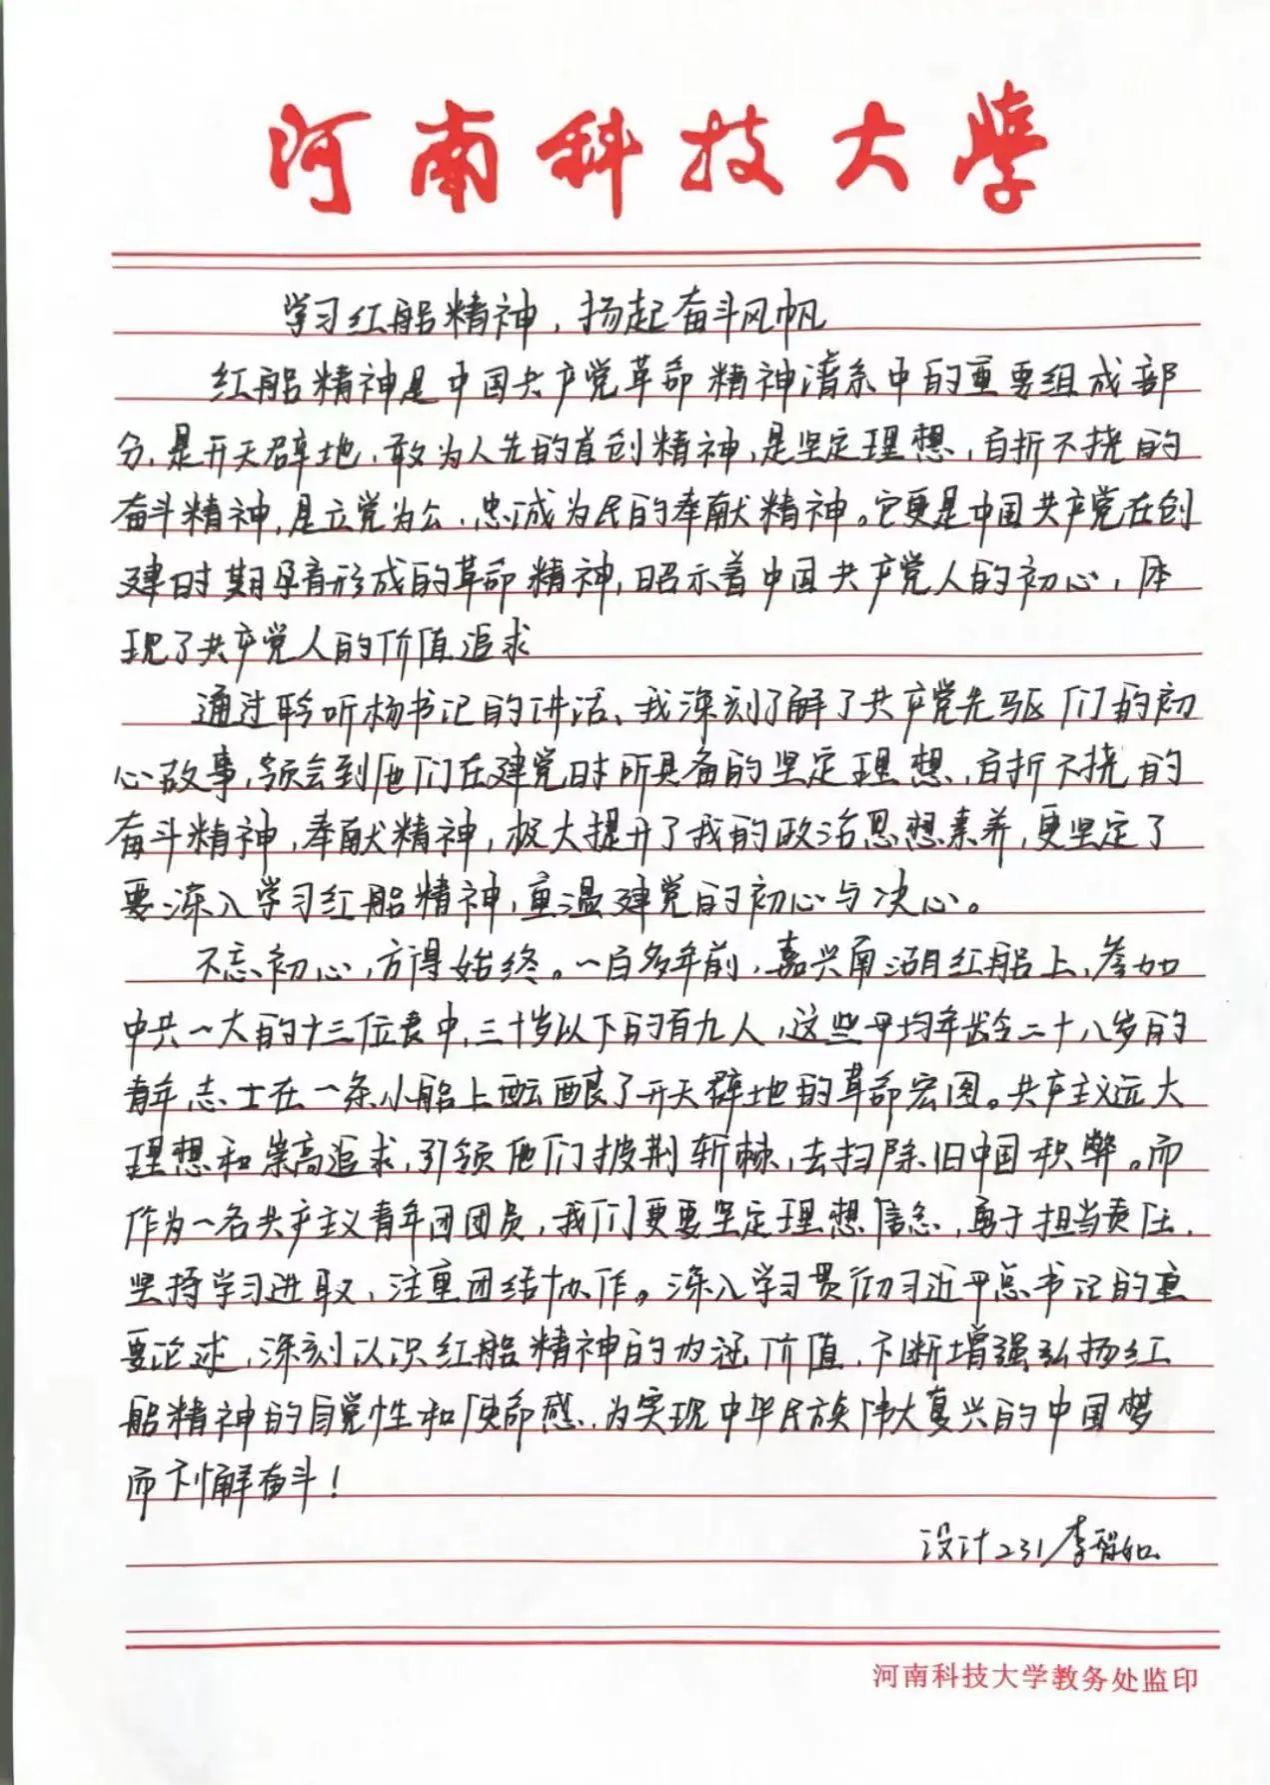 河南科技大学
学习红船精神，扬起奋斗风帆
红船精神是中国共产党革命精神谱系中的重要组成部
分，是开天辟地、敢为人先的首创精神，是坚定理想、百折不挠的
奋斗精神，是立党为公、忠诚为民的奉献精神。它更是中国共产党在创
建时期孕育形成的革命精神，昭示着中国共产党人的初心，体
现了共产党人的价值追求
通过聆听杨书记的讲话、我深刻了解了共产党先驱们的初
心故事，领会到他们在建党时所具备的坚定理想、百折不挠的
奋斗精神，奉献精神，极大提升了我的政治思想素养，更坚定了
要深入学习红船精神，重温建党的初心与决心。
不忘初心，方得始终。一百多年前，嘉兴南湖红船上，参加
中共一大的十三位代表中，三十岁以下的有九人，这些平均年龄二十八岁的
青年志士在一条小船上酝酿了开天辟地的革命宏图。共产主义远大
理想和崇高追求，引领他们披荆斩棘，去扫除旧中国积弊。而
作为一名共产主义青年团团员，我们更要坚定理想信念，勇于担当责任，
坚持学习进取，注重团结协作。深入学习贯彻习近平总书记的重
要论述，深刻认识红船精神的内涵价值，不断增强弘扬红
船精神的自觉性和使命感，为实现中华民族伟大复兴的中国梦
而不懈奋斗！
设计231 李智如
河南科技大学教务处监印